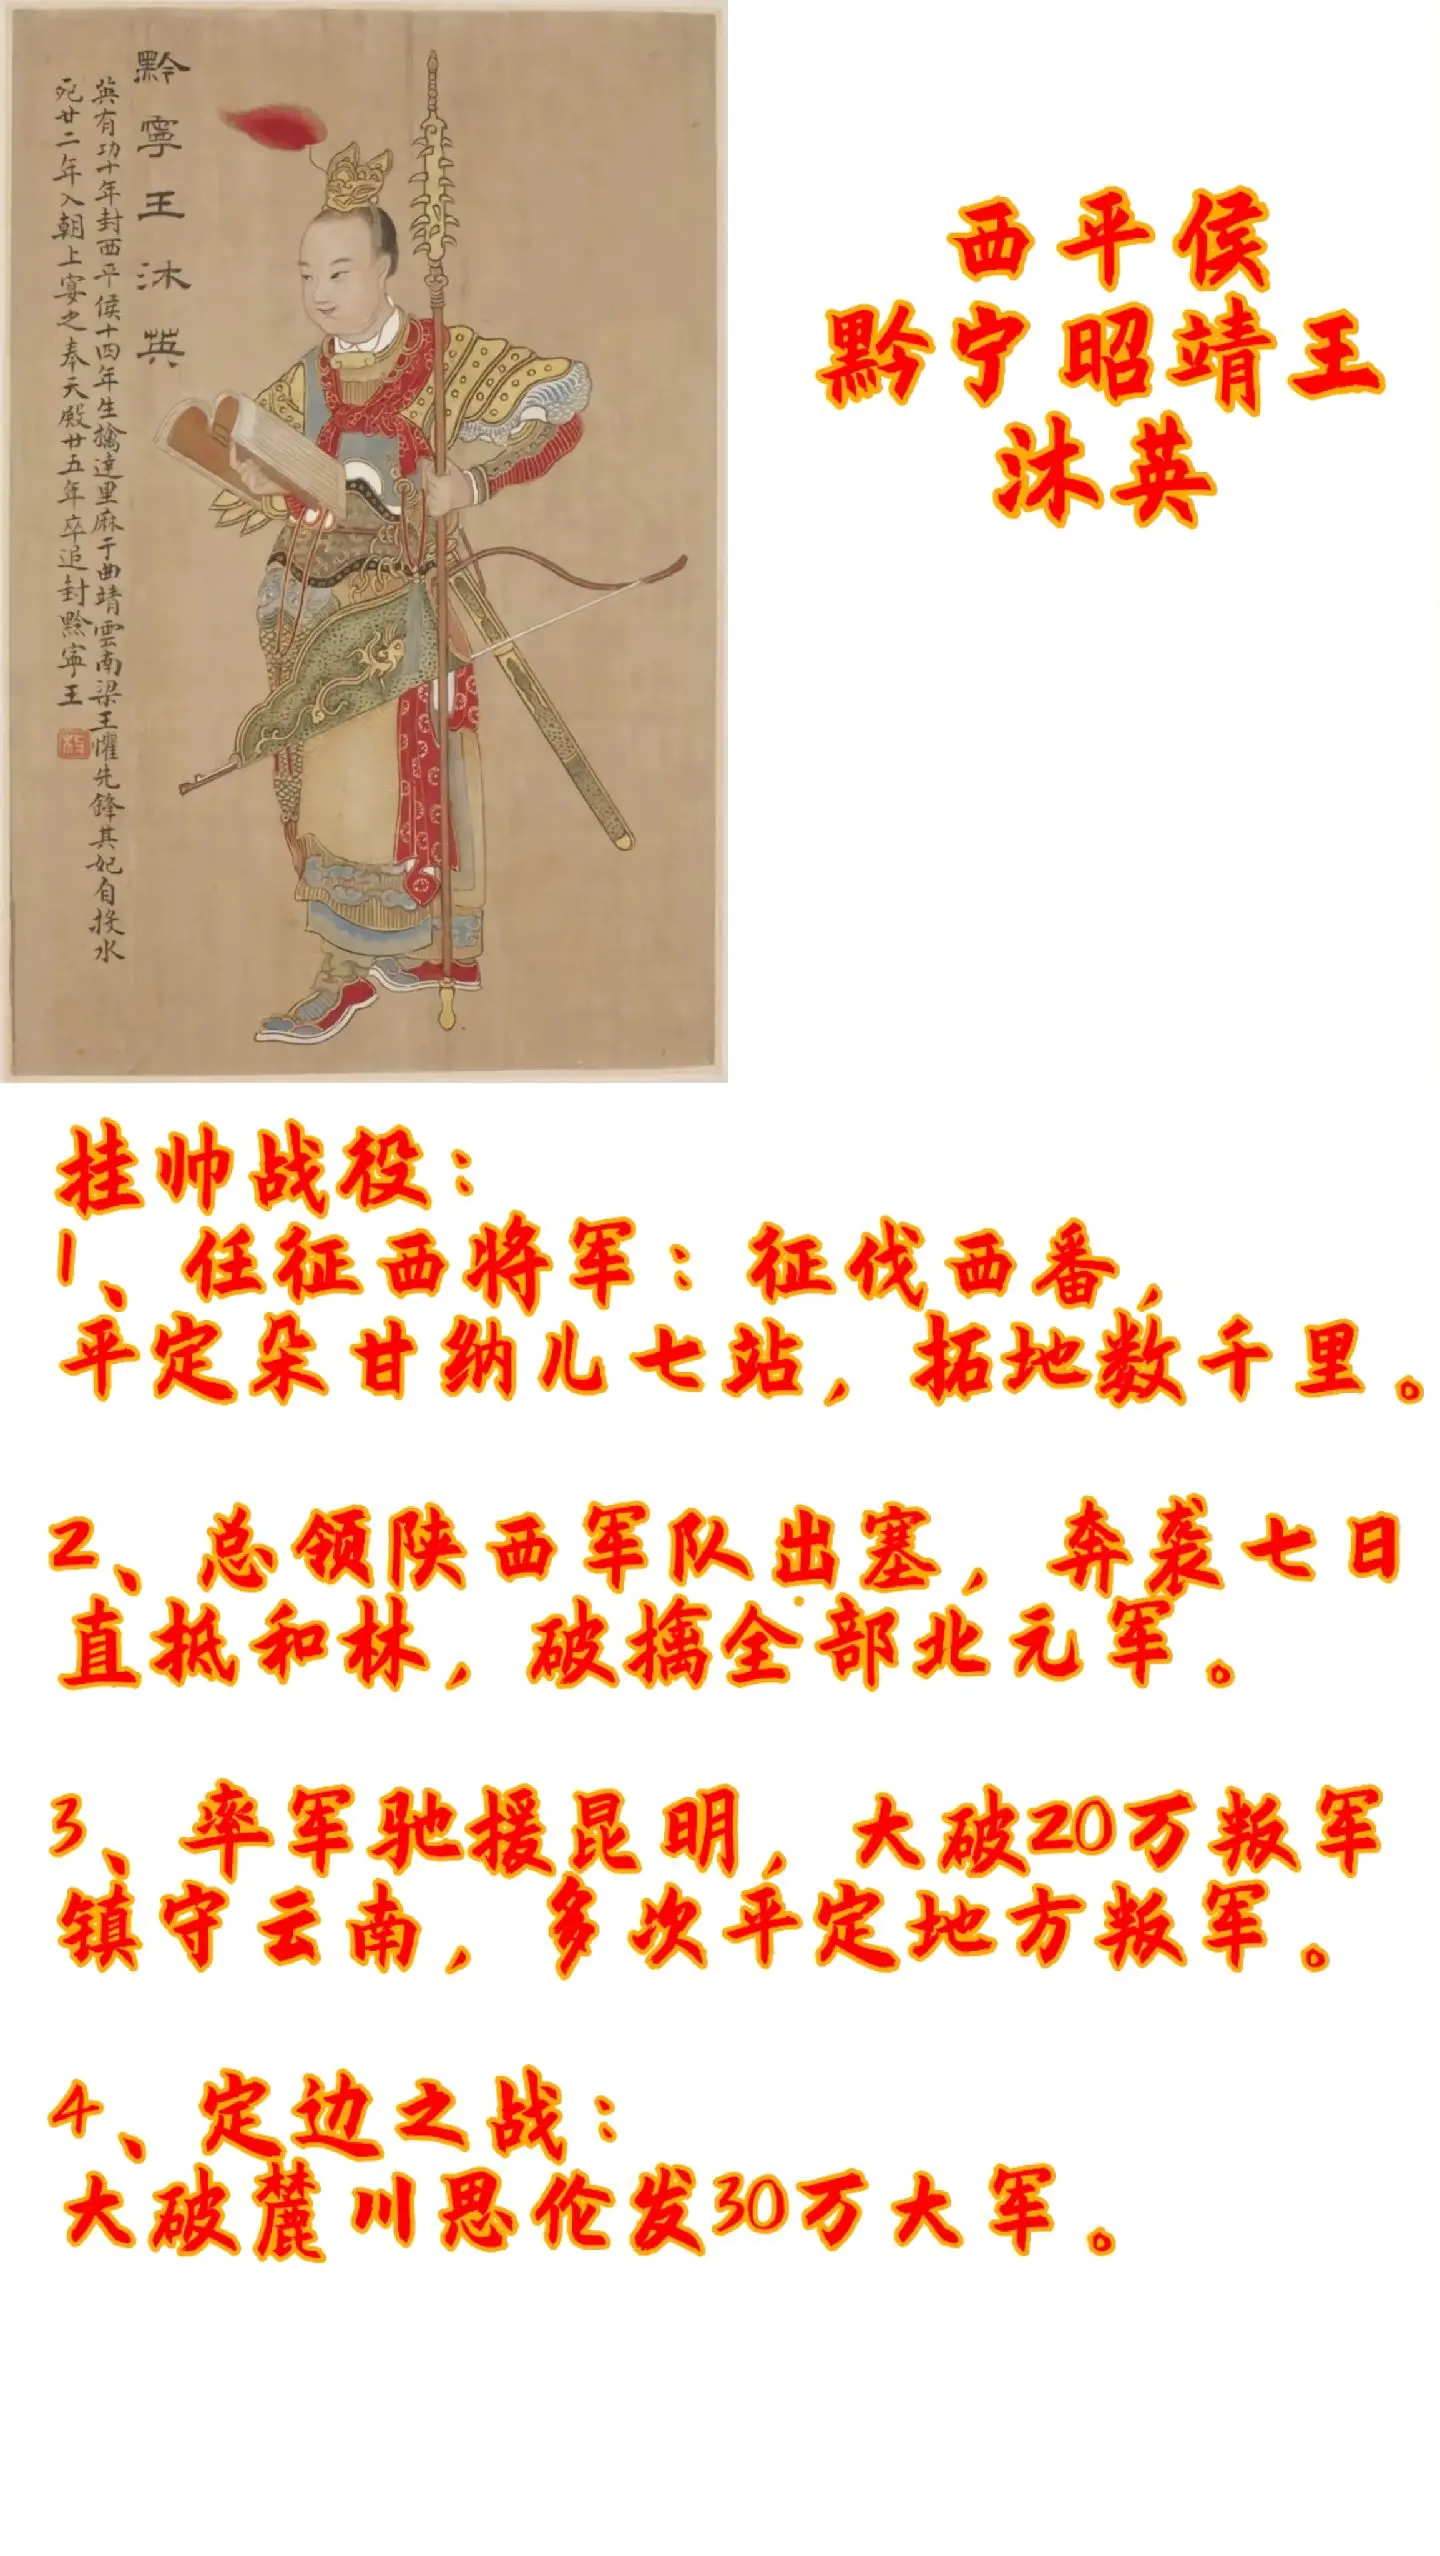 黔寧王沐英
英有功十年封西平侯十四年生擒達里麻于曲靖雲南梁王懼先鋒其妃自投水
死廿二年入朝上宴之奉天殿廿五年卒追封黔寧王
西平侯
黔宁昭靖王
沐英
挂帅战役：
1、任征西将军：征伐西番，
平定朵甘纳儿七站，拓地数千里。
2、总领陕西军队出塞，奔袭七日
直抵和林，破擒全部北元军。
3、率军驰援昆明，大破20万叛军
镇守云南，多次平定地方叛军。
4、定边之战：
大破麓川思伦发30万大军。